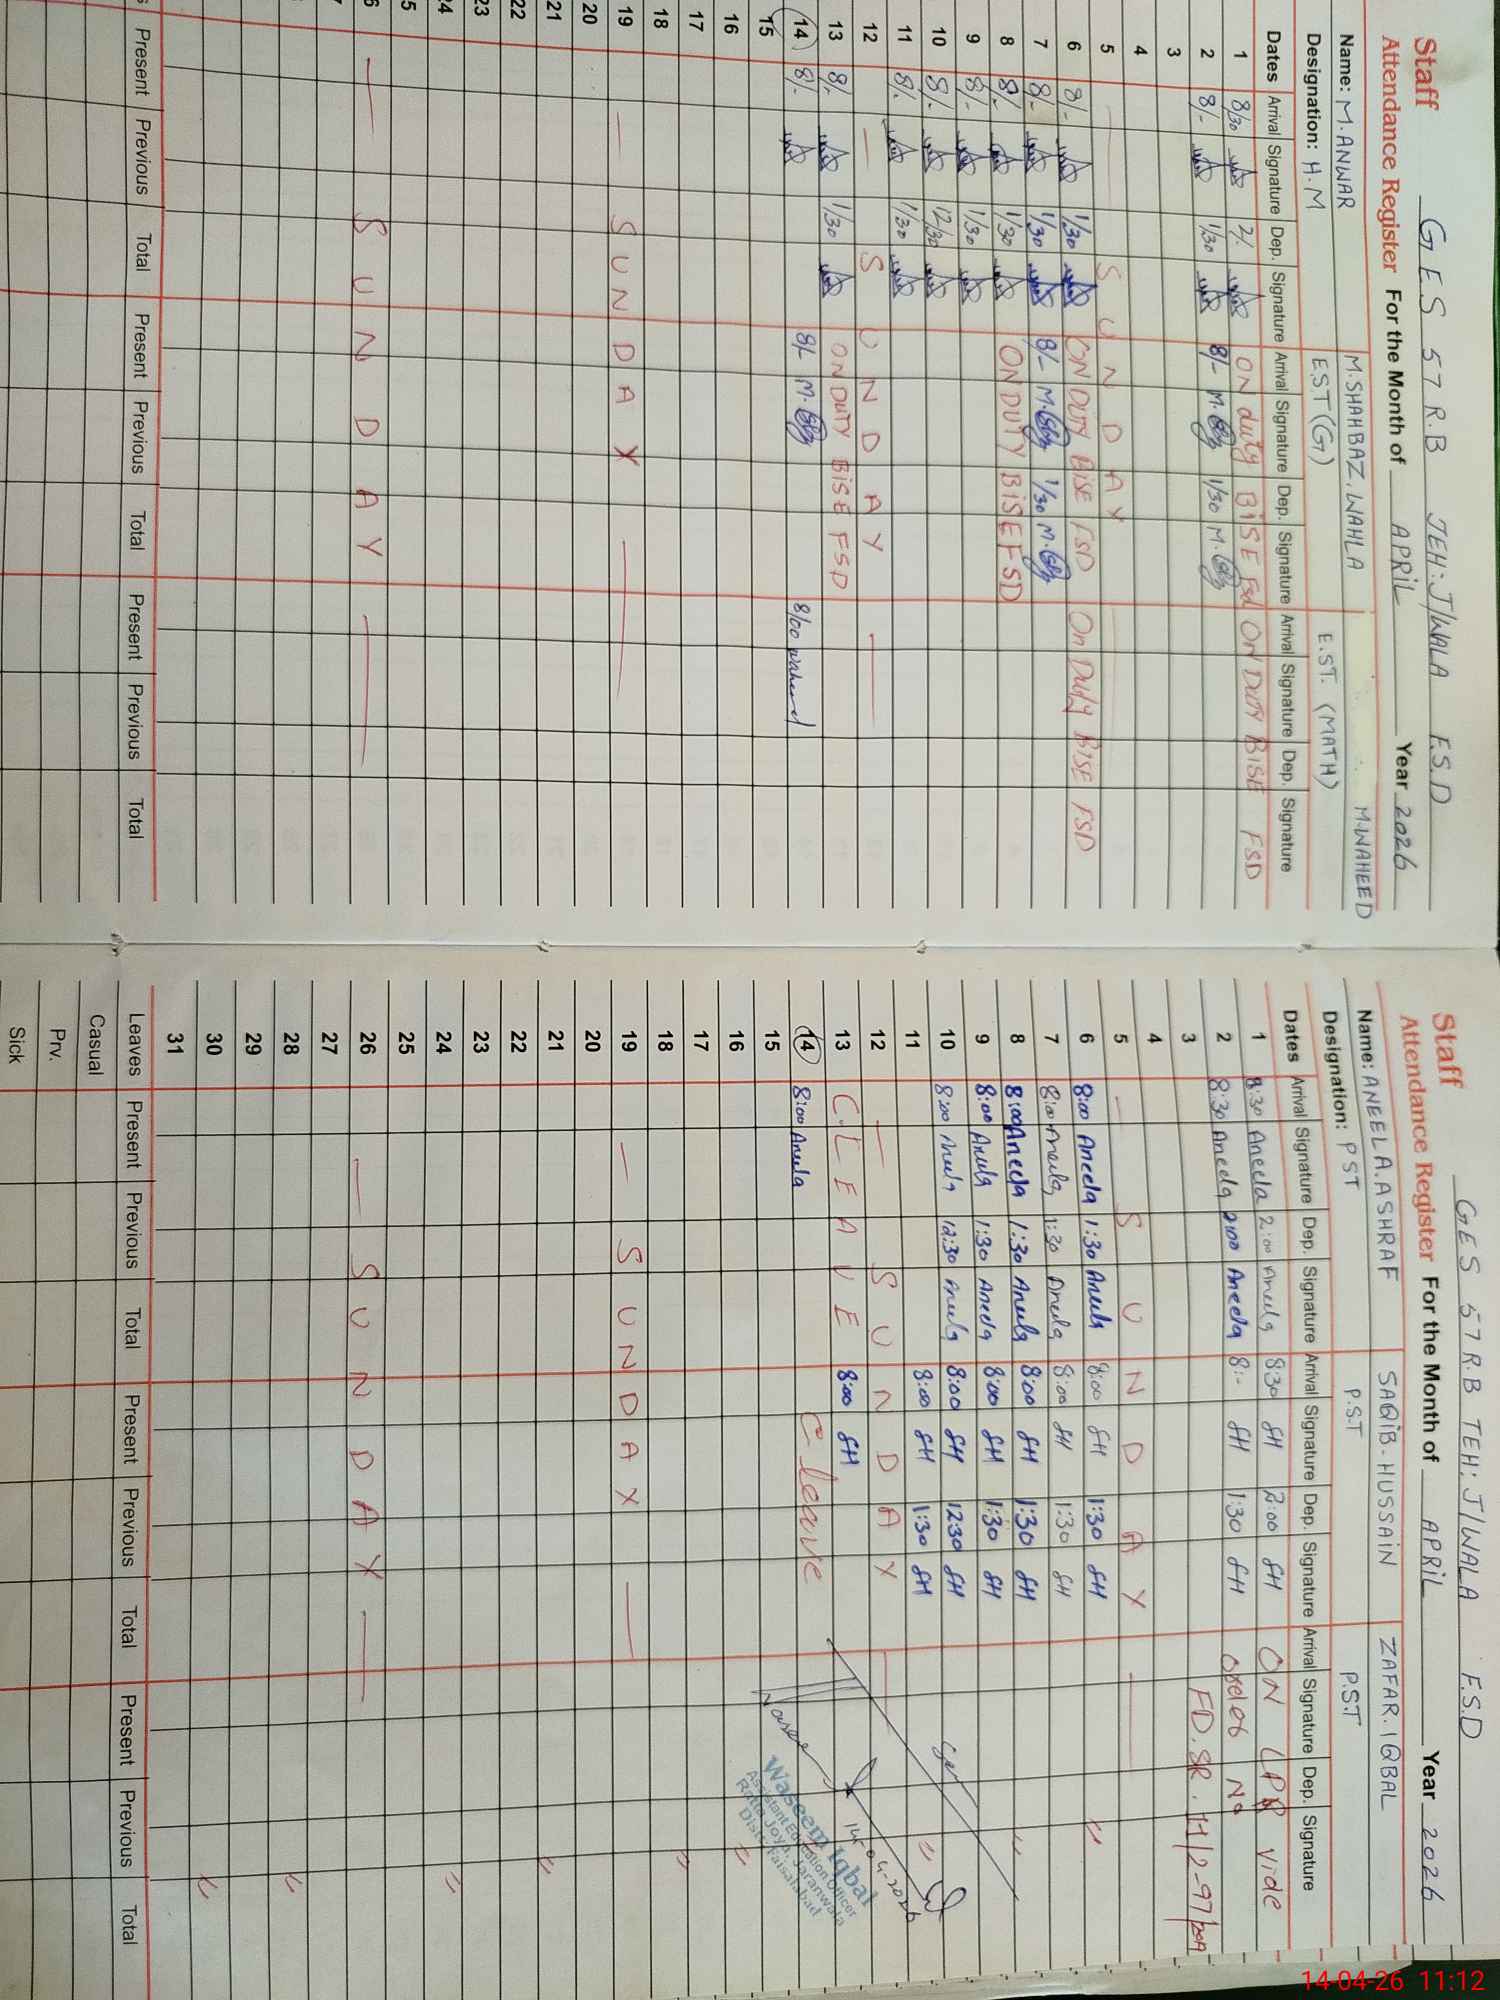 Staff GES 57 R.B TEH: J/WALA F.S.D
Attendance Register For the Month of APRIL Year 2026
Name: M.ANWAR M.SHAHBAZ.WAHLA M.WAHEED
Designation: H.M EST(G) E.ST. (MATH)
Dates Arrival Signature Dep. Signature Arrival Signature Dep. Signature Arrival Signature Dep. Signature
1 8/30 2/. ON duty BISE Fsd ON DUTY BISE FSD
2 8/- 1/30 8/- M. 1/30 M.
3
4
5 SUNDAY
6 8/- 1/30 ON DUTY BISE FSD On Duty BISE FSD
7 8/- 1/30 8/- M. 1/30 M.
8 8/- 1/30 ON DUTY BISE FSD
9 8/- 1/30
10 8/- 12/30
11 8/. 1/30
12 — SUNDAY —
13 8/. 1/30 ON DUTY BISE FSD
14 8/- 8/- M. 8/00 Waheed
15
16
17
18
19 — SUNDAY —
20
21
22
23
24
5
6 — SUNDAY —
7
Present Previous Total Present Previous Total Present Previous Total
Staff GES 57 R.B TEH: J/WALA F.S.D
Attendance Register For the Month of APRIL Year 2026
Name: ANEELA.ASHRAF SAQIB.HUSSAIN ZAFAR.IQBAL
Designation: PST P.S.T P.S.T
Dates Arrival Signature Dep. Signature Arrival Signature Dep. Signature Arrival Signature Dep. Signature
1 8:30 Aneela 2:00 Aneela 8:30 SH 2:00 SH ON LPR vide
2 8:30 Aneela 2:00 Aneela 8:- SH 1:30 SH order No
3 FD.SR.
4
5 — SUNDAY —
6 8:00 Aneela 1:30 Aneela 8:00 SH 1:30 SH "
7 8:00 Aneela 1:30 Aneela 8:00 SH 1:30 SH
8 8:00 Aneela 1:30 Aneela 8:00 SH 1:30 SH "
9 8:00 Aneela 1:30 Aneela 8:00 SH 1:30 SH
10 8:00 Aneela 12:30 Aneela 8:00 SH 12:30 SH
11 8:00 SH 1:30 SH "
12 — SUNDAY —
13 C.LEAVE 8:00 SH
14 8:00 Aneela C-leave
14-04-2026
Waseem Iqbal
Assistant Education Officer
Ratta Joya, Jaranwala
Distt. Faisalabad
15
16 "
17
18 "
19 — SUNDAY —
20
21 "
22
23
24 "
25
26 — SUNDAY —
27
28 "
29
30 "
31
Leaves Present Previous Total Present Previous Total Present Previous Total
Casual
Prv.
Sick
14-04-26 11:12